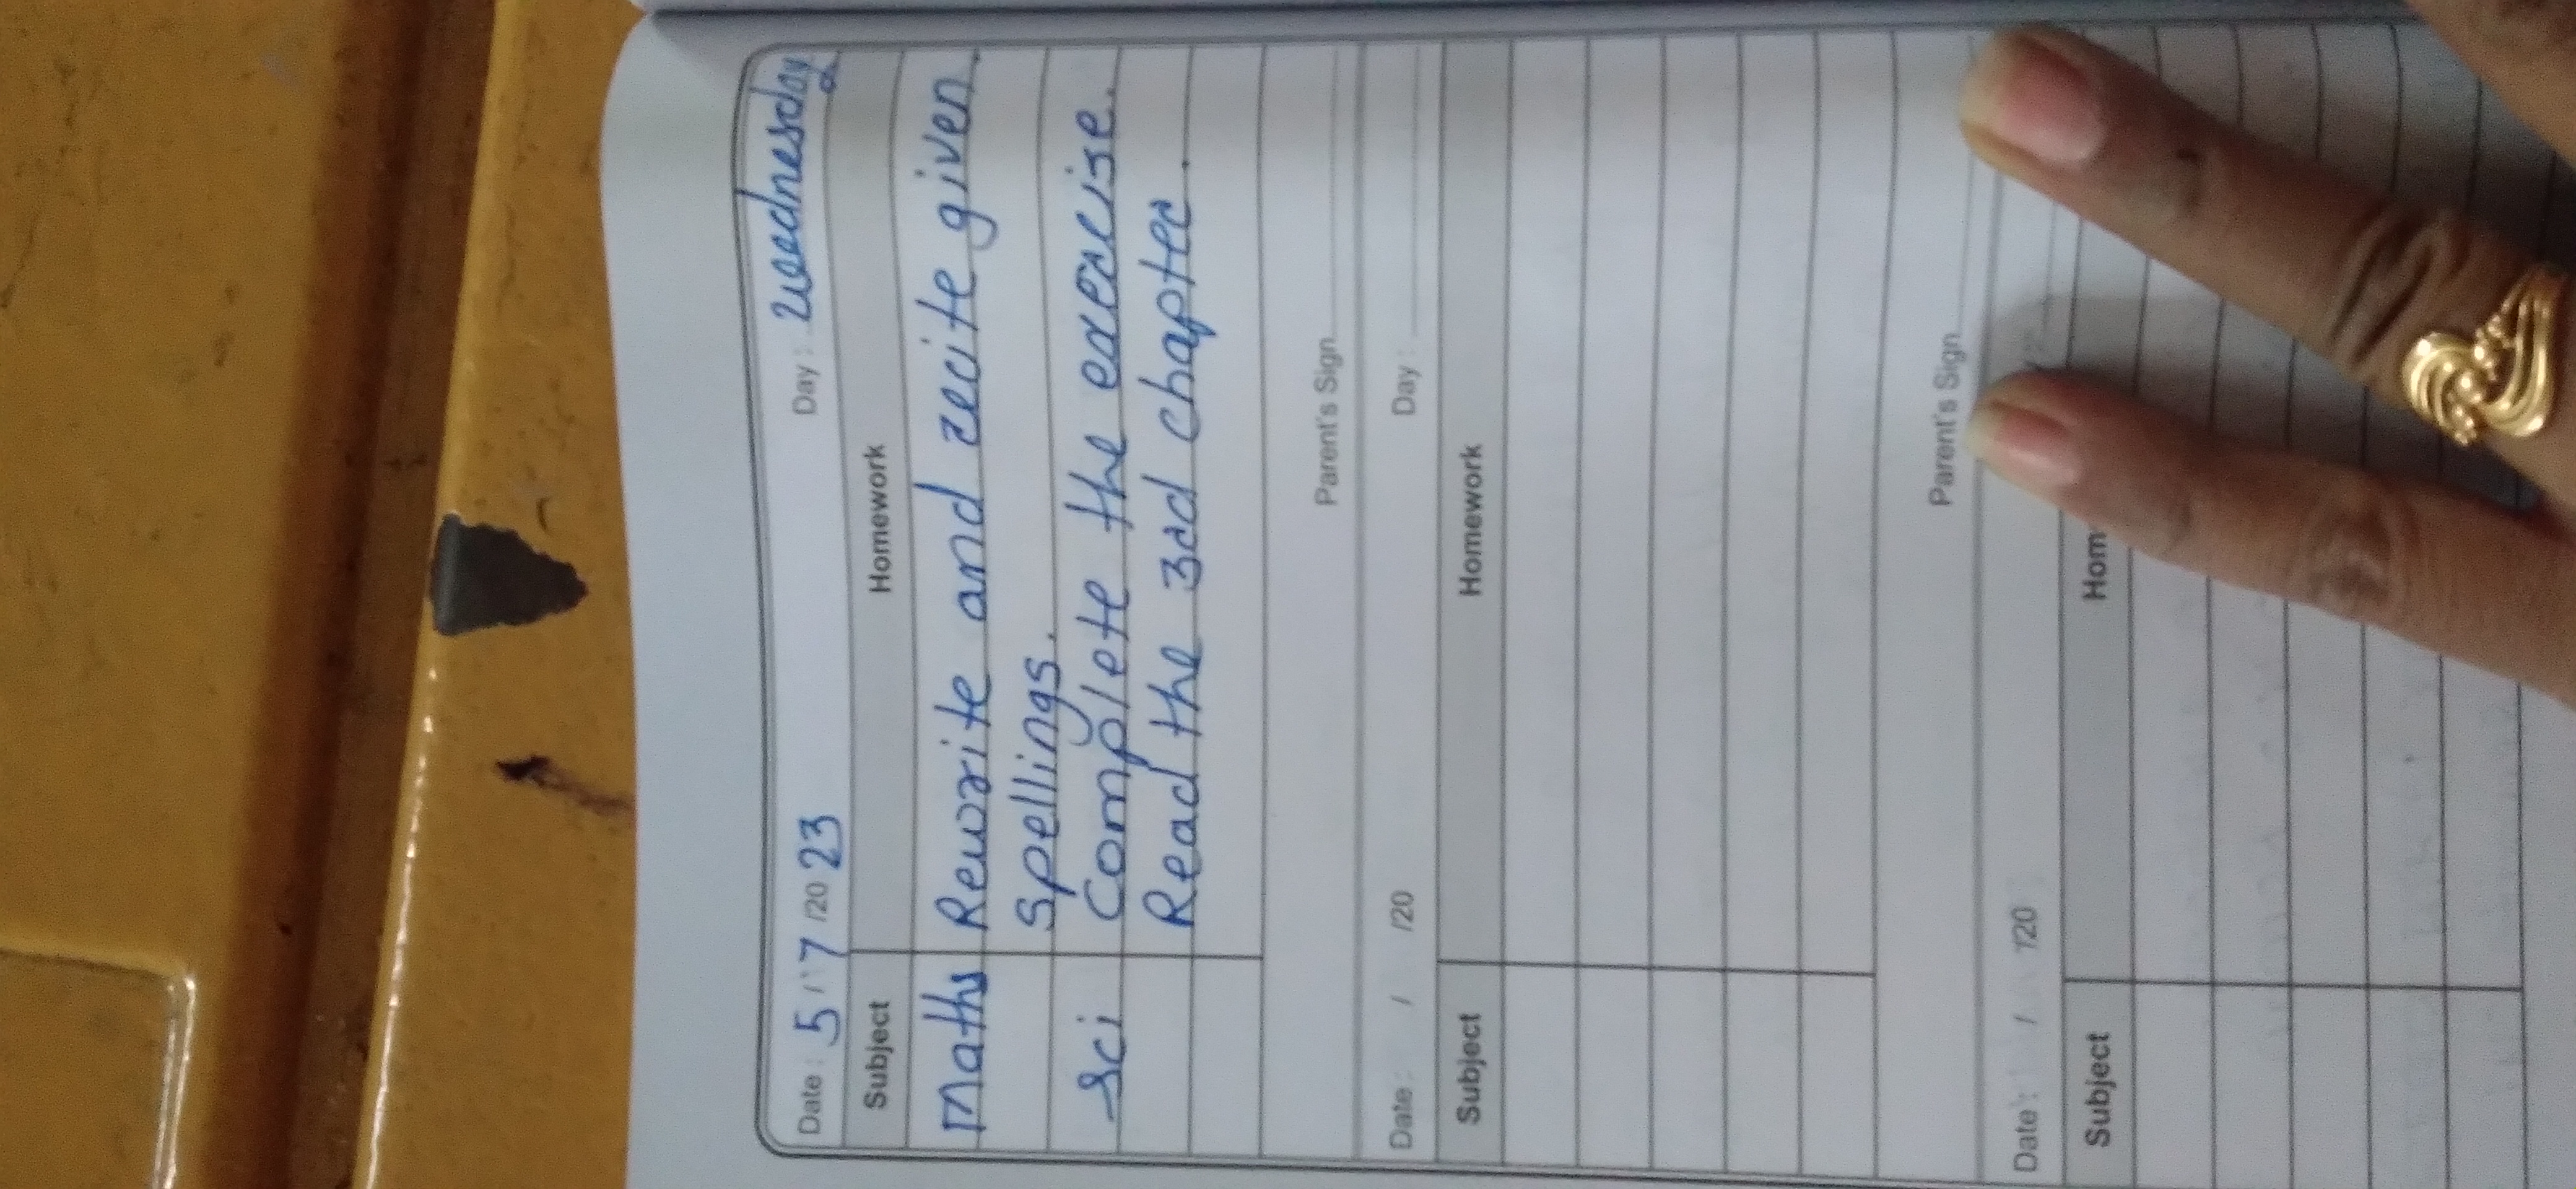 Date : 5 / 7 /20 23 Day : Wednesday
Subject Homework
Maths Rewrite and recite given
Spellings.
Sci Complete the exercise.
Read the 3rd chapter.
Parent's Sign
Date : / /20 Day :
Subject Homework
Parent's Sign
Date : / /20
Subject Hom